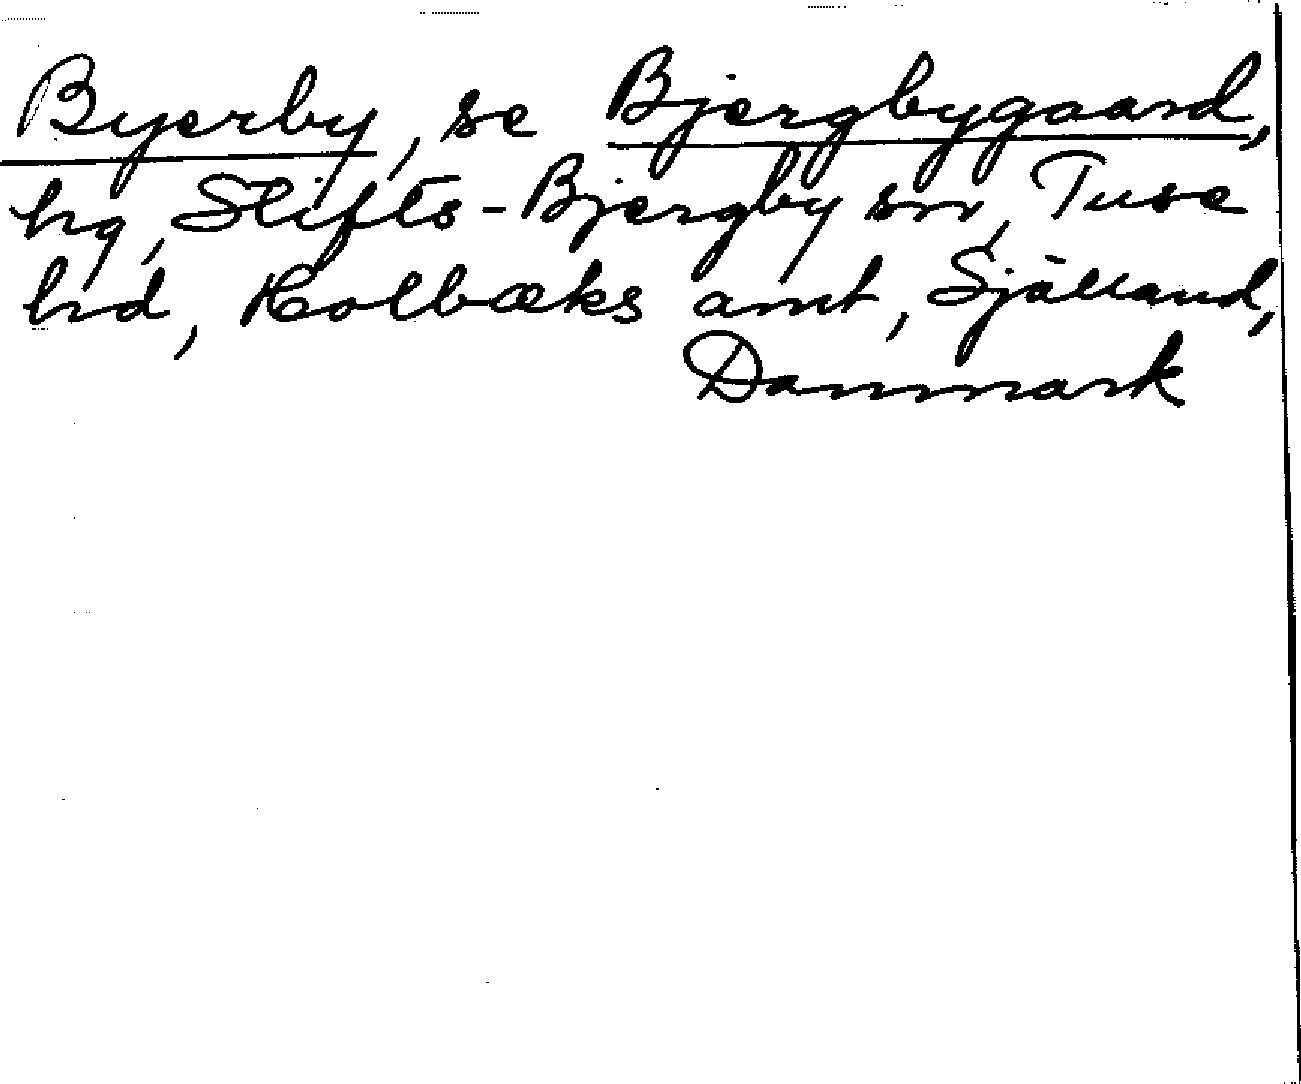 Byerby, se Bjergbygaard,
hg, Stifts-Bjergby sn, Tuse
hd, Holbæks amt, Själland,
Danmark